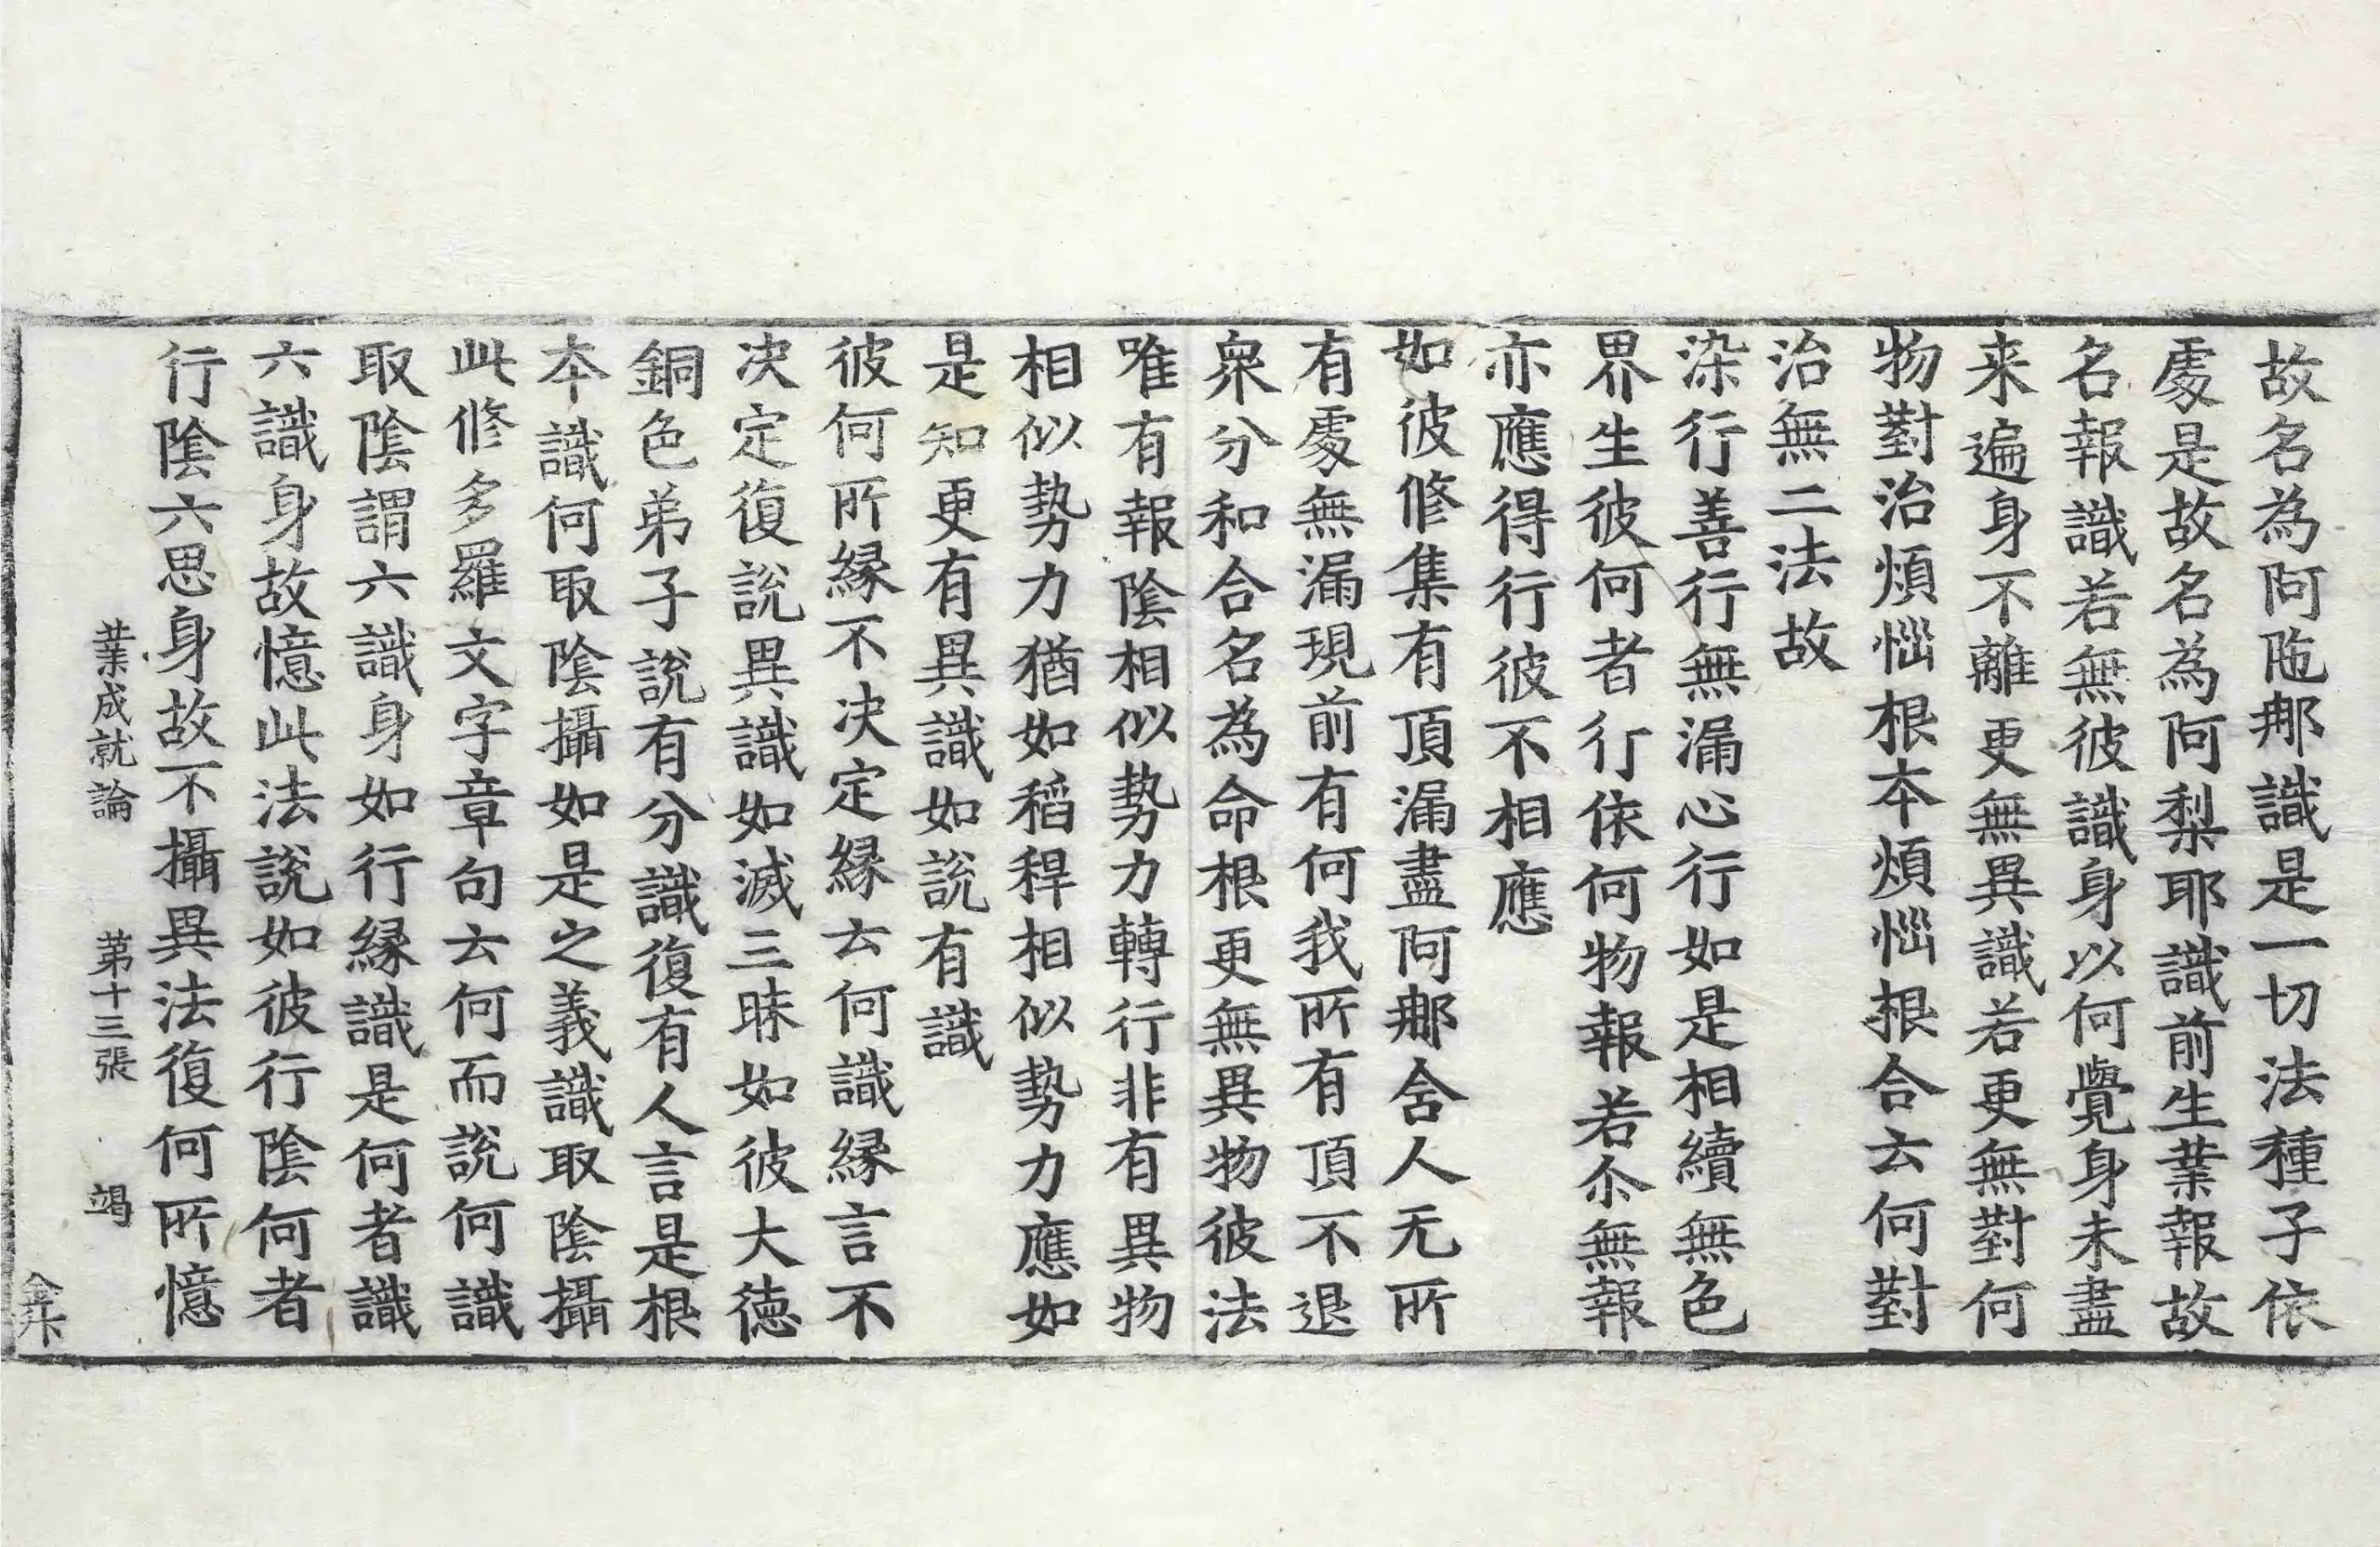 故名為阿陁那識是一切法種子依
䖏是故名為阿梨耶識前生業報故
名報識若無彼識身以何覺身未盡
来遍身不離更無異識若更無對何
物對治煩惱根本煩惱根合云何對
治無二法故
染行善行無漏心行如是相續無色
界生彼何者行依何物報若尒無報
亦應得行彼不相應
如彼修集有頂漏盡阿那含人无所
有䖏無漏現前有何我所有頂不退
衆分和合名為命根更無異物彼法
唯有報陰相似勢力轉行非有異物
相似勢力猶如稻稈相似勢力應如
是知更有異識如說有識
彼何所緣不决定緣云何識緣言不
决定復說異識如滅三昧如彼大德
銅色弟子說有分識復有人言是根
本識何取陰攝如是之義識取陰攝
此修多羅文字章句云何而說何識
取陰謂六識身如行緣識是何者識
六識身故憶此法說如彼行陰何者
行陰六思身故不攝異法復何所憶
業成就論　第十三張　竭